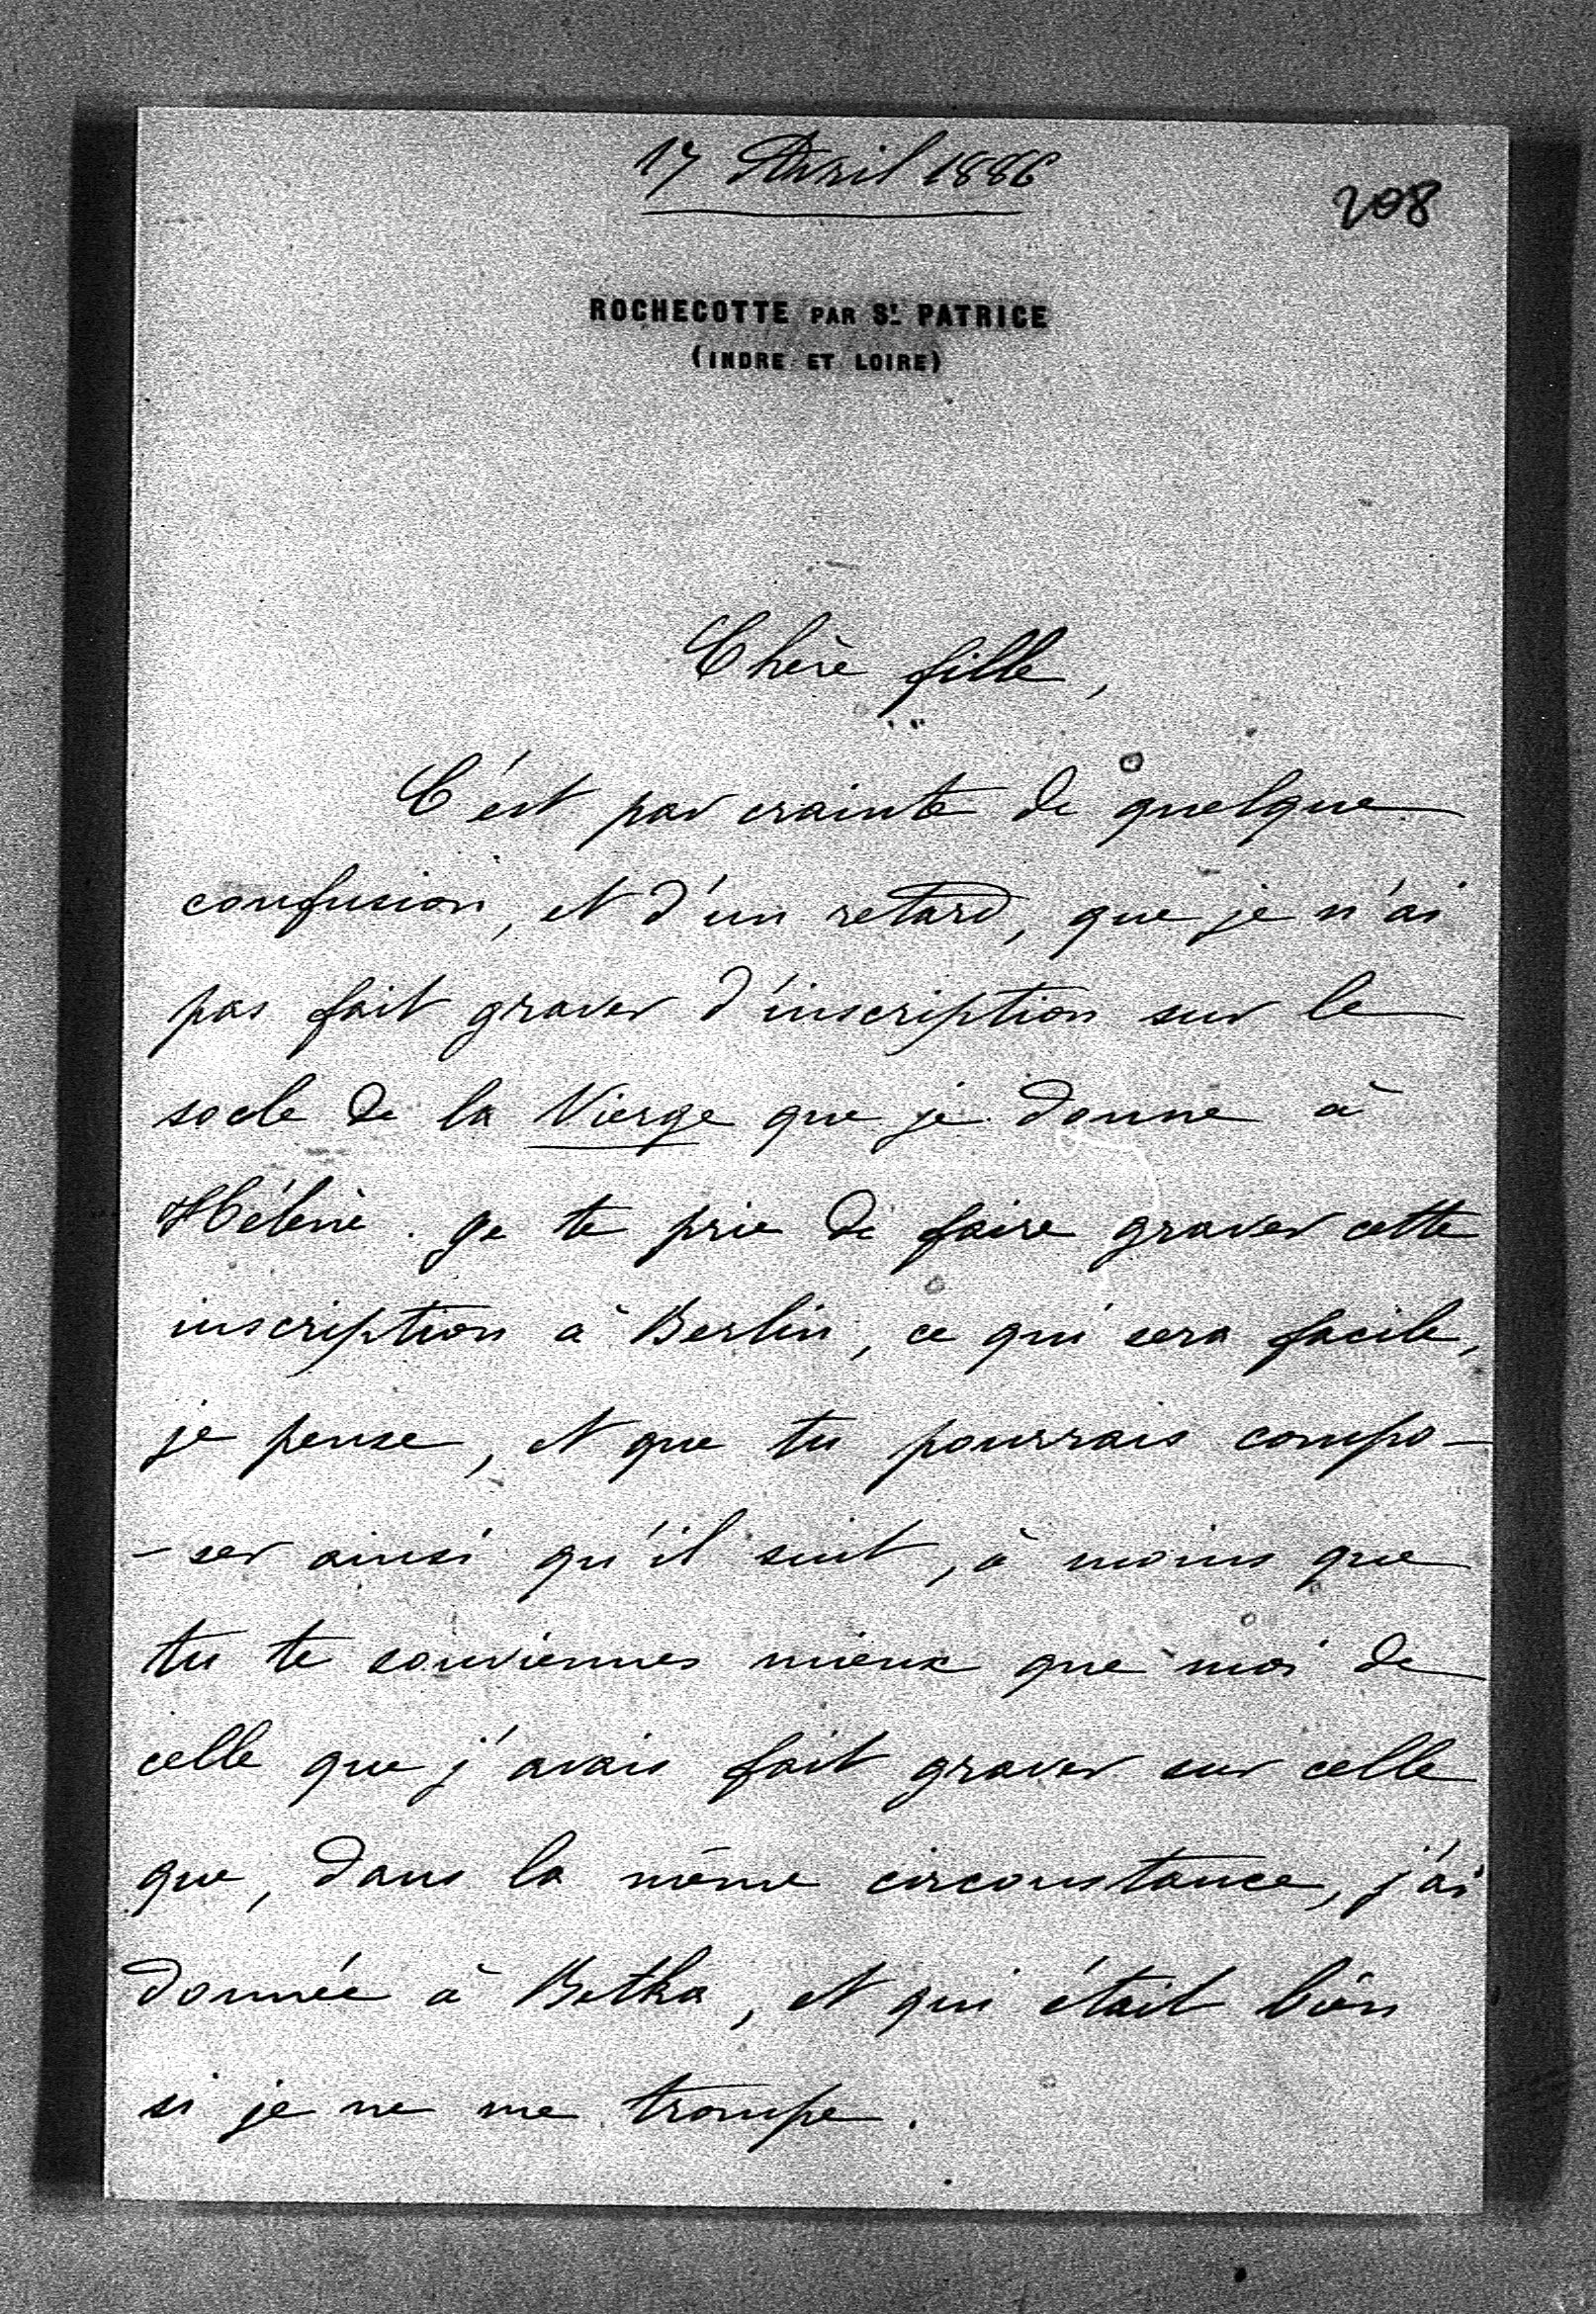 17 Avril 1886
208
ROCHECOTTE PAR St. PATRICE
(INDRE ET LOIRE)
Chère fille,
C'est par crainte de quelque
confusion, et d'un retard, que je n'ai
pas fait graver d'inscription sur le
socle de la Vierge que je donne à
Hélène. Je te prie de faire graver cette
inscription à Berlin, ce qui sera facile,
je pense, et que tu pourrais compo-
-ser ainsi qu'il suit, à moins que
tu te souviennes mieux que moi de
celle que j'avais fait graver sur celle
que, dans la même circonstance, j'ai
donnée à Betka, et qui était bien
si je ne me trompe.